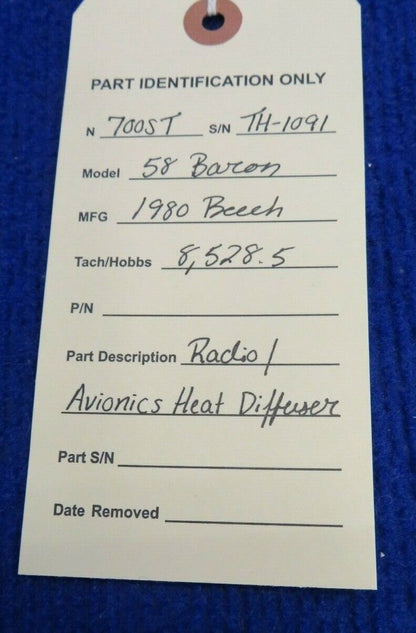 PART IDENTIFICATION ONLY
N 700ST S/N TH-1091
Model 58 Baron
MFG 1980 Beech
Tach/Hobbs 8,528.5
P/N
Part Description Radio/
Avionics Heat Diffuser
Part S/N
Date Removed